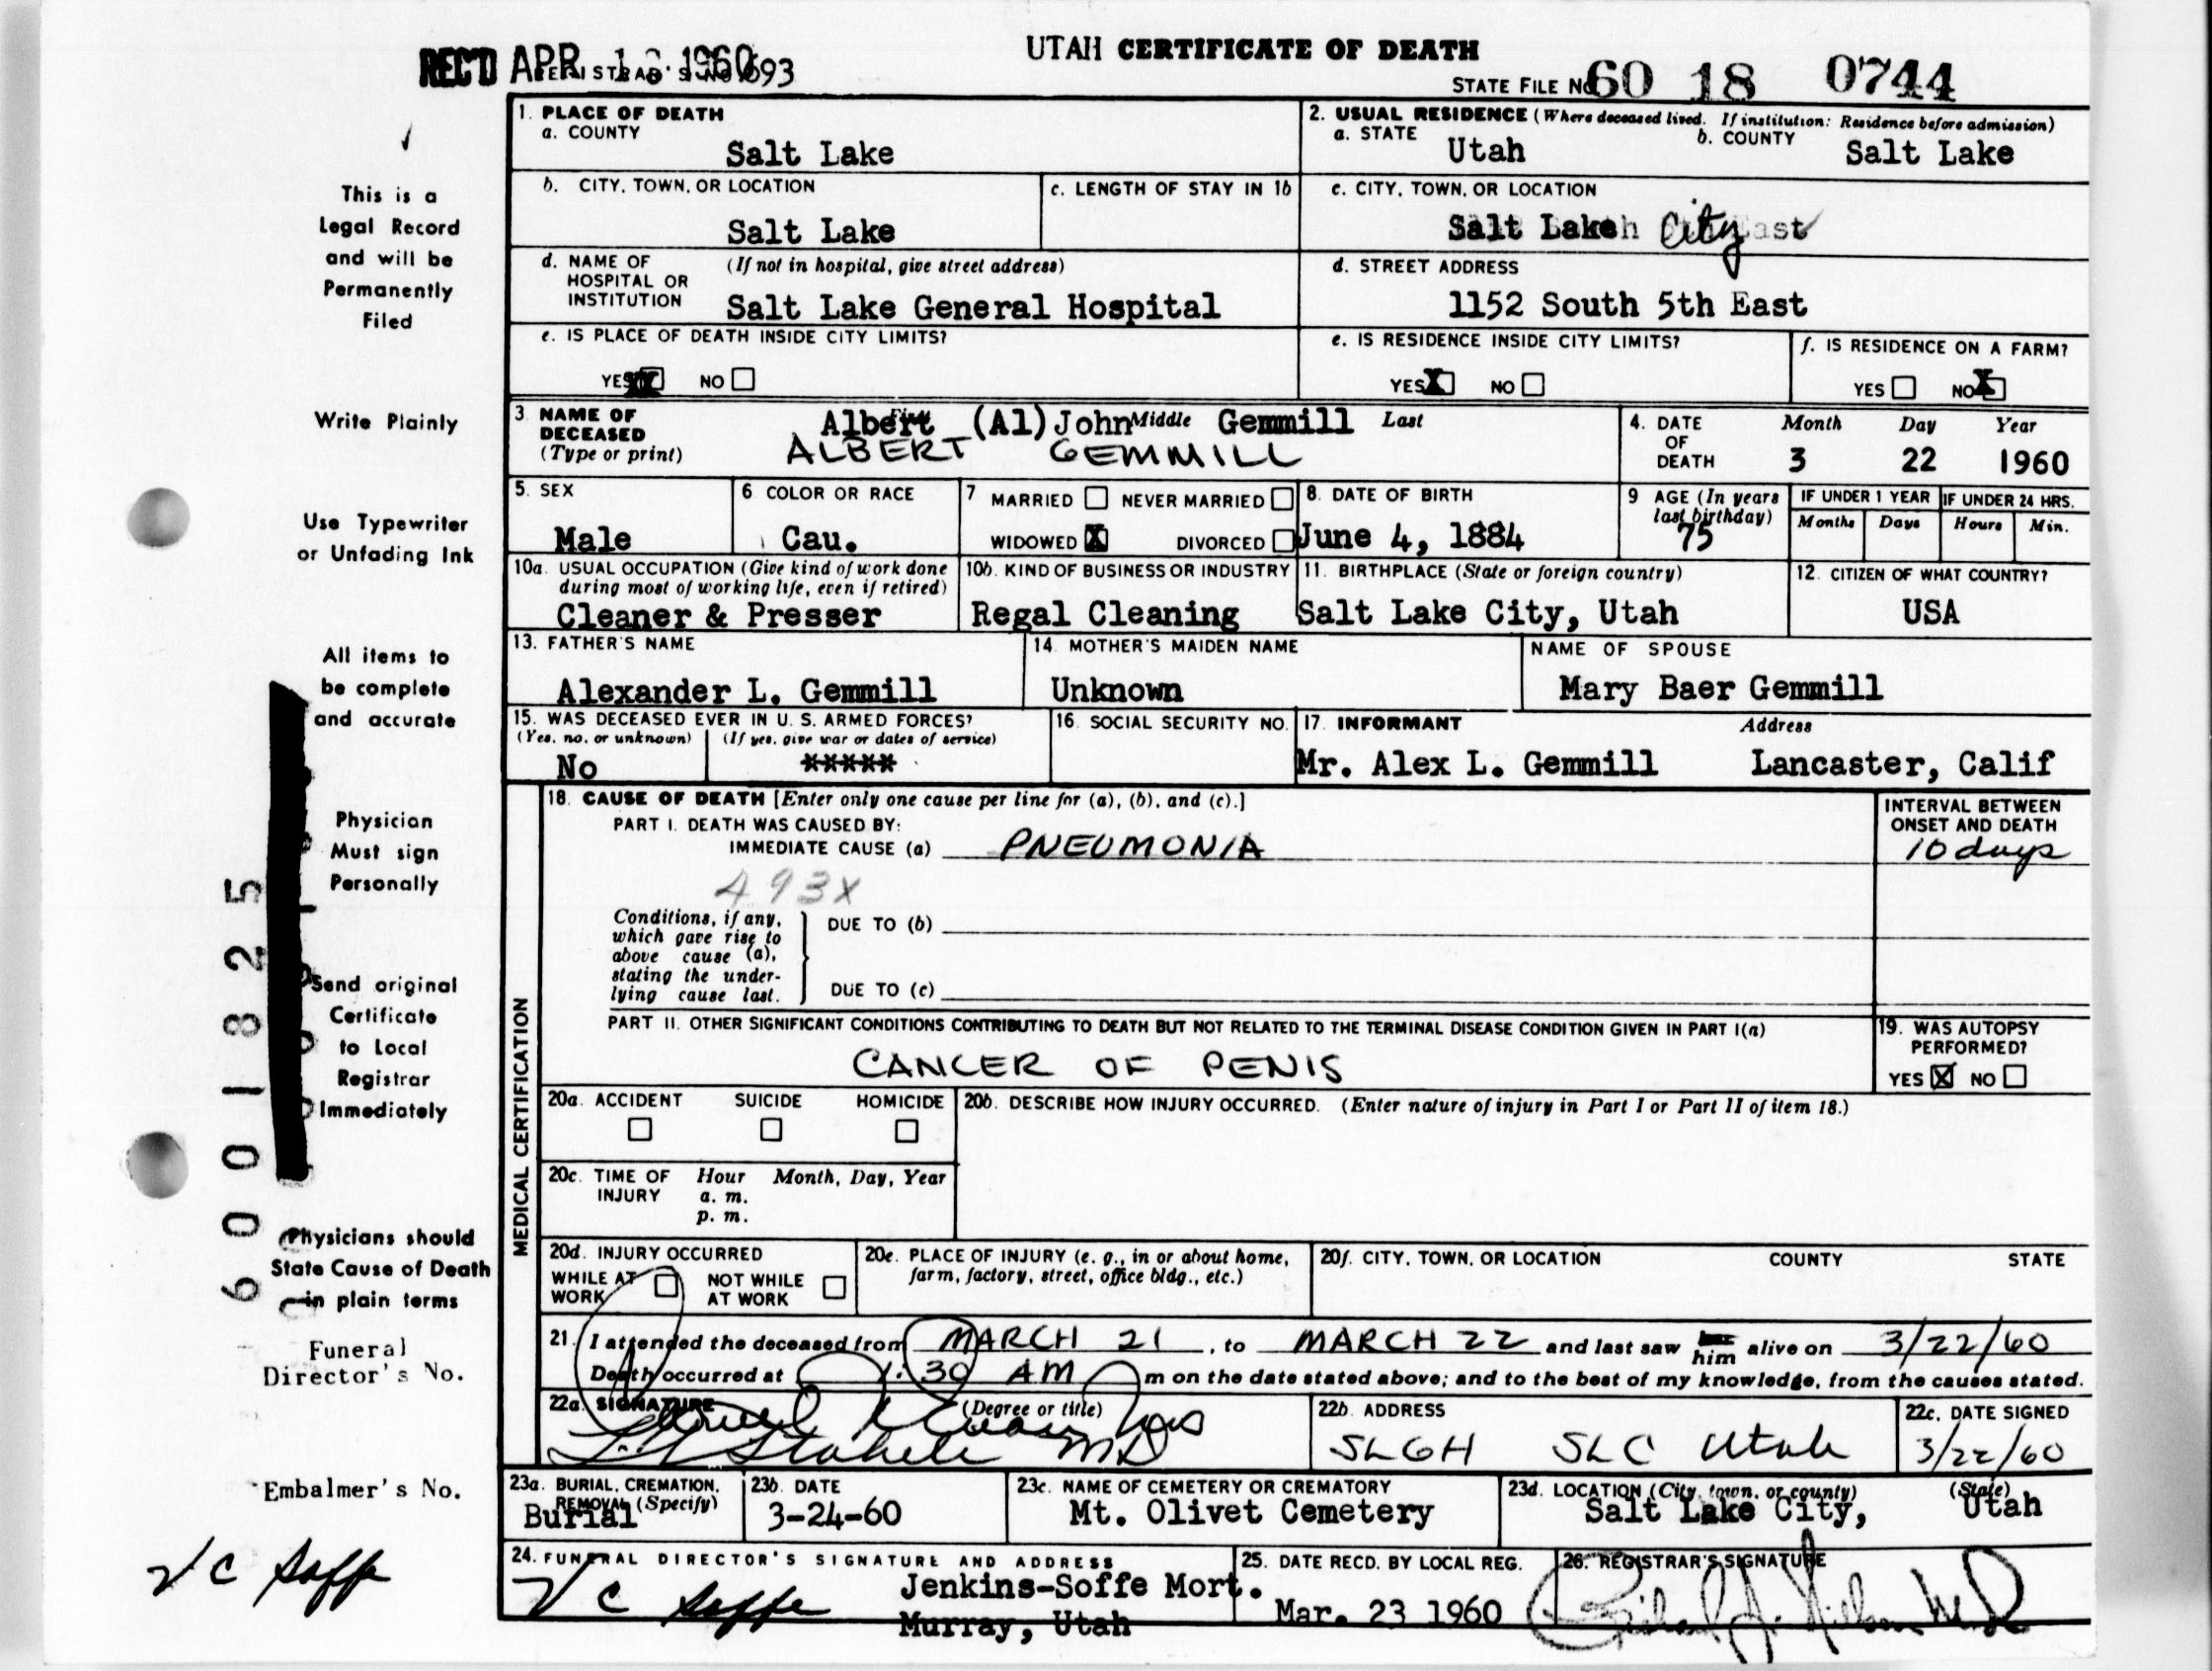 UTAH CERTIFICATE OF DEATH
REC'D APR 1960 693
STATE FILE No. 60 18 0744
1. PLACE OF DEATH
a. COUNTY
Salt Lake
2. USUAL RESIDENCE (Where deceased lived. If institution: Residence before admission)
a. STATE Utah b. COUNTY Salt Lake
b. CITY, TOWN, OR LOCATION
Salt Lake
c. LENGTH OF STAY IN 1b
c. CITY, TOWN, OR LOCATION
Salt Lake City
d. NAME OF HOSPITAL OR INSTITUTION (If not in hospital, give street address)
Salt Lake General Hospital
d. STREET ADDRESS
1152 South 5th East
e. IS PLACE OF DEATH INSIDE CITY LIMITS?
YES X NO
e. IS RESIDENCE INSIDE CITY LIMITS?
YES X NO
f. IS RESIDENCE ON A FARM?
YES NO X
3. NAME OF DECEASED (Type or print)
First Middle Last
Albert (Al) John Gemmill
ALBERT GEMMILL
4. DATE OF DEATH
Month Day Year
3 22 1960
5. SEX
Male
6 COLOR OR RACE
Cau.
7 MARRIED NEVER MARRIED
WIDOWED X DIVORCED
8. DATE OF BIRTH
June 4, 1884
9 AGE (In years last birthday)
75
IF UNDER 1 YEAR
Months Days
IF UNDER 24 HRS.
Hours Min.
10a. USUAL OCCUPATION (Give kind of work done during most of working life, even if retired)
Cleaner & Presser
10b. KIND OF BUSINESS OR INDUSTRY
Regal Cleaning
11. BIRTHPLACE (State or foreign country)
Salt Lake City, Utah
12. CITIZEN OF WHAT COUNTRY?
USA
13. FATHER'S NAME
Alexander L. Gemmill
14. MOTHER'S MAIDEN NAME
Unknown
NAME OF SPOUSE
Mary Baer Gemmill
15. WAS DECEASED EVER IN U. S. ARMED FORCES?
(Yes, no, or unknown) (If yes, give war or dates of service)
No *****
16. SOCIAL SECURITY NO.
17. INFORMANT Address
Mr. Alex L. Gemmill Lancaster, Calif
MEDICAL CERTIFICATION
18. CAUSE OF DEATH [Enter only one cause per line for (a), (b), and (c).]
PART I. DEATH WAS CAUSED BY:
IMMEDIATE CAUSE (a) PNEUMONIA
INTERVAL BETWEEN ONSET AND DEATH
10 days
493X
Conditions, if any, which gave rise to above cause (a), stating the underlying cause last.
DUE TO (b)
DUE TO (c)
PART II. OTHER SIGNIFICANT CONDITIONS CONTRIBUTING TO DEATH BUT NOT RELATED TO THE TERMINAL DISEASE CONDITION GIVEN IN PART I(a)
CANCER OF PENIS
19. WAS AUTOPSY PERFORMED?
YES X NO
20a. ACCIDENT SUICIDE HOMICIDE
20b. DESCRIBE HOW INJURY OCCURRED. (Enter nature of injury in Part I or Part II of item 18.)
20c. TIME OF INJURY Hour Month, Day, Year
a. m.
p. m.
20d. INJURY OCCURRED
WHILE AT WORK NOT WHILE AT WORK
20e. PLACE OF INJURY (e. g., in or about home, farm, factory, street, office bldg., etc.)
20f. CITY, TOWN, OR LOCATION COUNTY STATE
21. I attended the deceased from MARCH 21, to MARCH 22 and last saw him alive on 3/22/60
Death occurred at :30 AM m on the date stated above; and to the best of my knowledge, from the causes stated.
22a. SIGNATURE (Degree or title)
MD
22b. ADDRESS
SLGH SLC Utah
22c. DATE SIGNED
3/22/60
23a. BURIAL, CREMATION, REMOVAL (Specify)
Burial
23b. DATE
3-24-60
23c. NAME OF CEMETERY OR CREMATORY
Mt. Olivet Cemetery
23d. LOCATION (City, town, or county) (State)
Salt Lake City, Utah
24. FUNERAL DIRECTOR'S SIGNATURE AND ADDRESS
V C Soffe Jenkins-Soffe Mort.
Murray, Utah
25. DATE RECD. BY LOCAL REG.
Mar. 23 1960
26. REGISTRAR'S SIGNATURE
This is a
Legal Record
and will be
Permanently
Filed
Write Plainly
Use Typewriter
or Unfading Ink
All items to
be complete
and accurate
Physician
Must sign
Personally
Send original
Certificate
to Local
Registrar
Immediately
Physicians should
State Cause of Death
in plain terms
Funeral
Director's No.
Embalmer's No.
V C Soffe
6001825